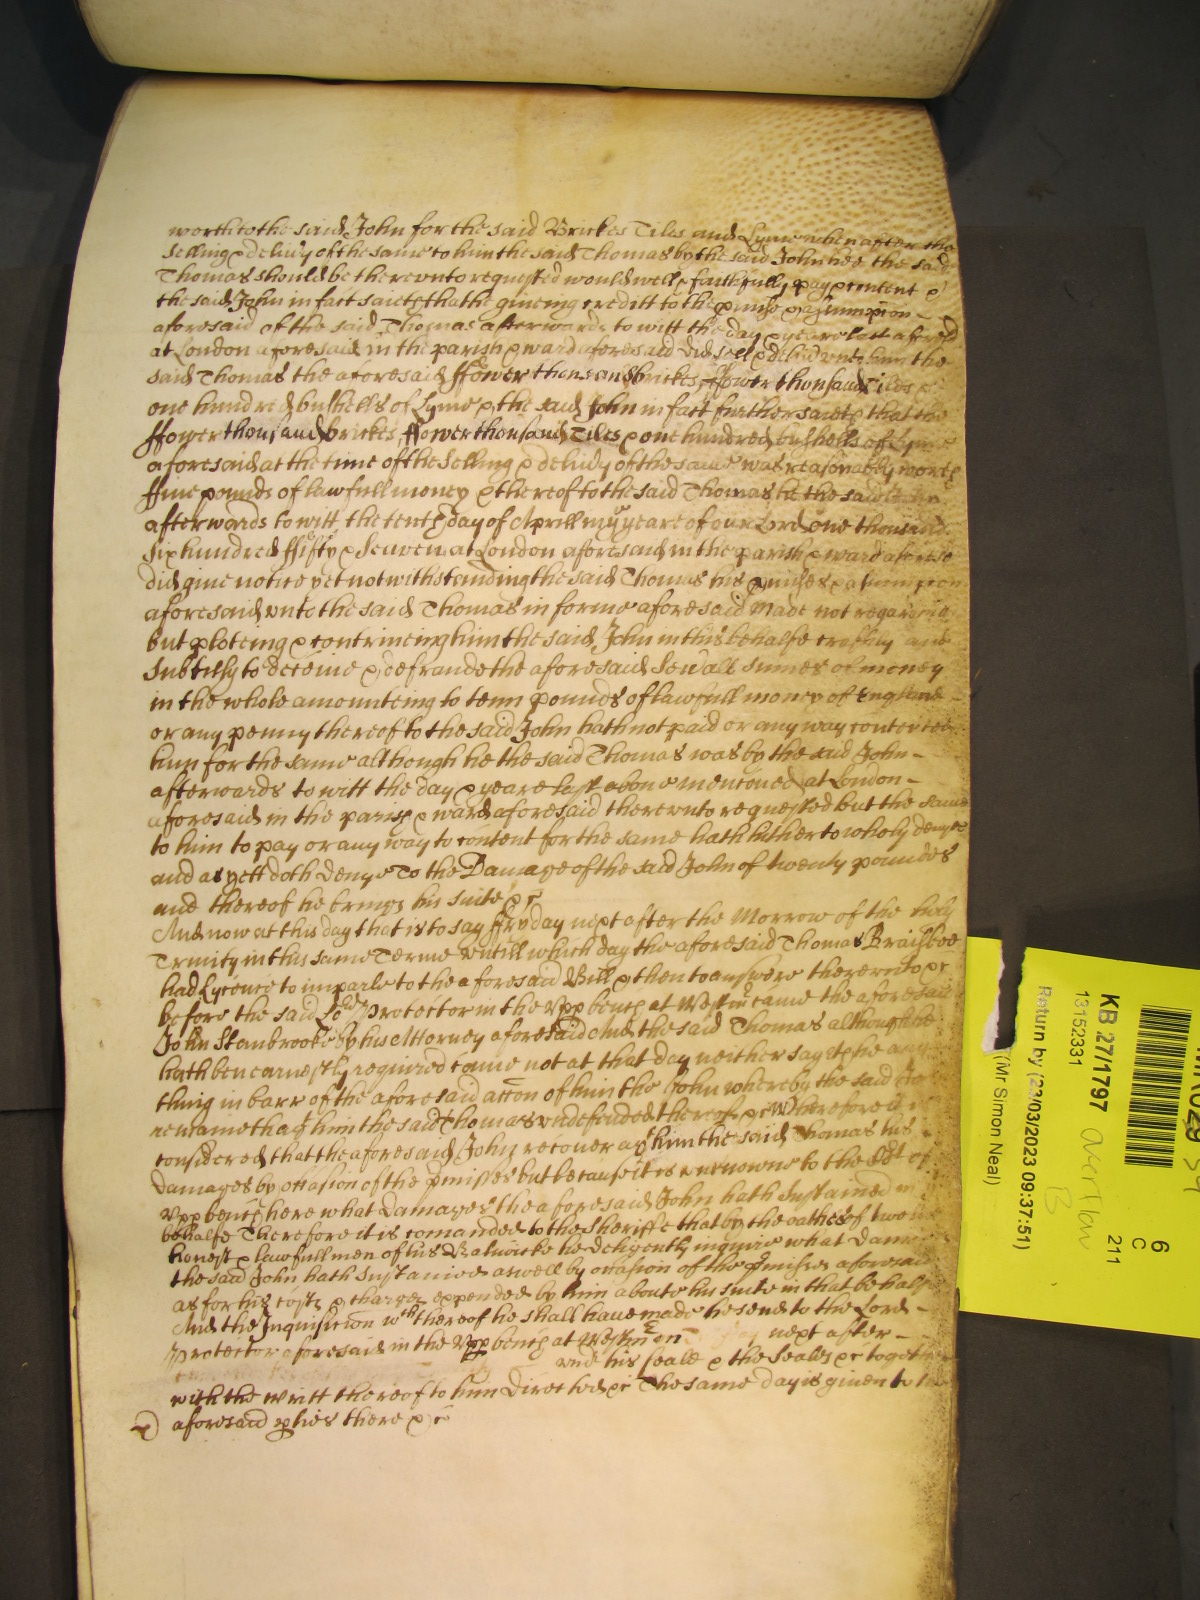 worth to the said John for the said Brickes Tiles and Lyme when after the
Selling & delivy of the same to him the said Thomas by the said John hee the said
Thomas should be therevnto requested would well & faithfully pay & content &
the said John in fact saieth that he giueing creditt to the pmise & assumpcon
aforesaid of the said Thomas afterwards to witt the day & yeare last aforesd
at London aforesaid in the parish & ward aforesaid did sell & deliu vnto him the
said Thomas the aforesaid ffower thousand brickes ffower thousand Tiles &
one hundred bushells of Lyme & the said John in fact further saieth that the
ffower thousand brickes ffower thousand Tiles & one hundred bushells of Lyme
aforesaid at the time of the Selling & delivy of the same was reasonably worth
ffiue pounds of lawfull money & thereof to the said Thomas he the said John
afterwards to witt the tenth day of Aprill in ye yeare of our Lord one thousand
Six hundred ffifty & Seauen at London aforesaid in the parish & ward aforesd
did giue notice yet notwithstanding the said Thomas his pmises & assumpcon
aforesaid vnto the said Thomas in forme aforesaid made not regarding
but ploteing & contriueing him the said John in this behalfe craftily and
Subtilly to deceiue & defraude the aforesaid Seu'all summes of money
in the whole amounteing to tenn pounds of lawfull money of England
or any penny thereof to the said John hath not paid or any way contented
him for the same although he the said Thomas was by the said John
afterwards to witt the day & yeare last aboue mencioned at London
aforesaid in the parish & ward aforesaid therevnto requested but the same
to him to pay or any way to content for the same hath hitherto wholy denyed
and as yett doth denye To the Damage of the said John of twenty poundes
and thereof he brings his suite &c
And now at this day that is to say ffryday next after the Morrow of the holy
Trinity in this same Terme vntill which day the aforesaid Thomas Braisbee
had Lycence to imparle to the aforesaid Bill & then to answere therevnto &c
before the said Lord Protector in the Vpp bench at Westm came the aforesaid
John Stanbrooke by his Attorney aforesaid And the said Thomas although he
hath ben earnestly required came not at that day neither sayeth he any
thing in barr of the aforesaid accon of him the John whereby the said John
remaineth agt him the said Thomas vndefended thereof &c Wherefore it is
considered that the aforesaid John recouer agt him the said Thomas his
damages by occasion of the pmisses but because it is vnknowne to the Cot of
Vpp bench here what damages the aforesaid John hath Sustained in
behalfe Therefore it is comanded to the Sheriffe that by the oathes of twelue
honest & lawfull men of his Baliwicke he diligently inquire what damages
the said John hath Sustained aswell by occasion of the pmisses aforesaid
as for his costs & charges expended by him about his suite in that behalfe
And the Inquisicion wch thereof he shall haue made he send to the Lord
Protector aforesaid in the Vpp bench at Westm on next after
vnd his seale & the seales &c together
with the writt thereof to him directed &c The same day is giuen to the
aforesaid pties there &c
KB 27/1797 overflow
13152331
B
Return by (23/03/2023 09:37:51)
(Mr Simon Neal)
6
C
211